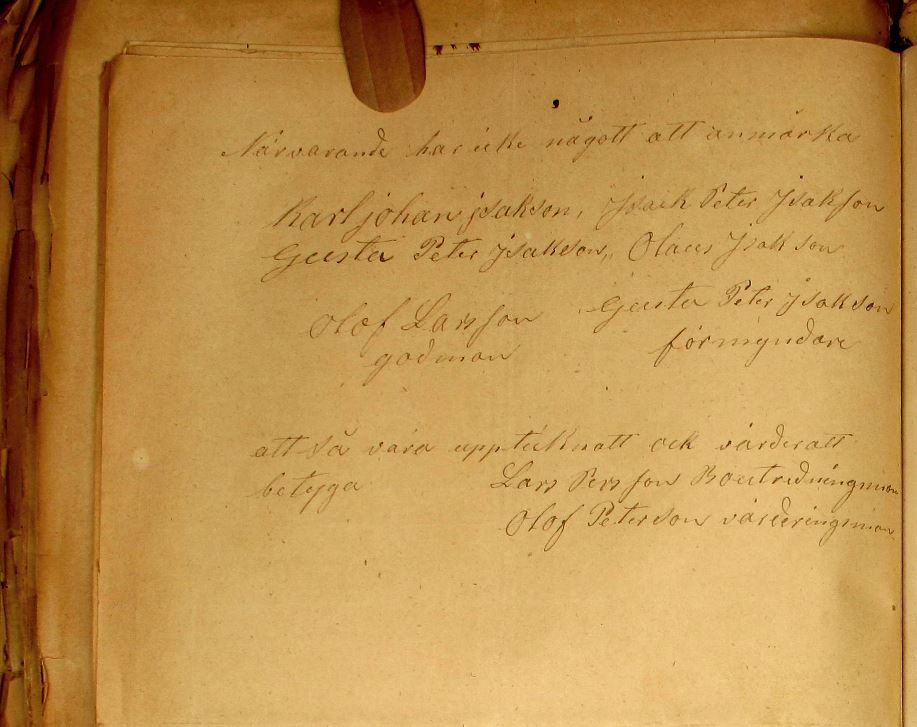 Närvarande har icke någott att anmärka
Karl johan jsakson, Jsack Peter Jsakson
Gusta Peter Jsakson, Olaus Jsakson
Olof Larsson Gusta Peter jsakson
godman förmyndare
att så vara upptecknatt ock värderatt
betyga Lars Persson Boutredningsman
Olof Peterson värderingsman